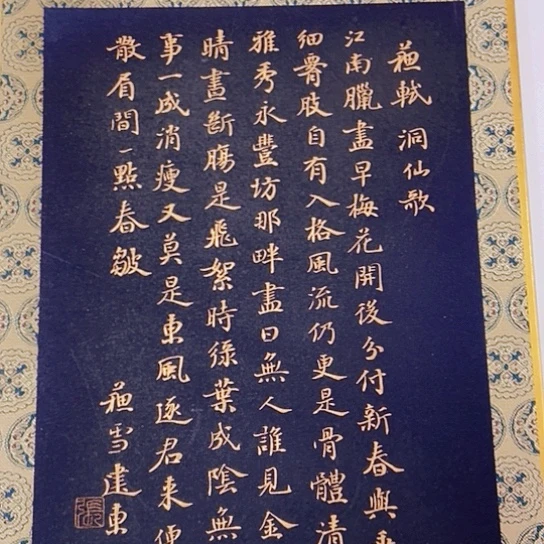 蘓軾 洞仙歌
江南臘盡早梅花開後分付新春與
細腰肢自有入格風流仍更是骨體清
雅秀永豐坊那畔盡日無人誰見金
晴晝斷腸是飛絮時綠葉成陰無
事一成消瘦又莫是東風逐君來便
散眉間一點春皺
蘓雪建東
張